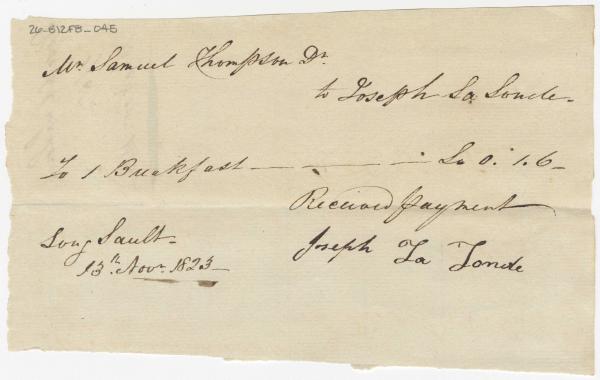 26-B12F8-045
Mr. Samuel Thompson Dr.
to Joseph La Londe.
To 1 Breakfast — — — £0.1.6
Received Payment
Long Sault
Joseph La Londe
13th Novr. 1823